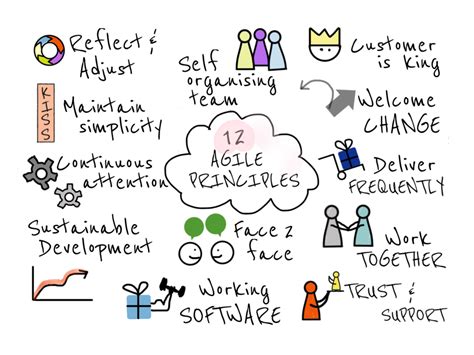 Reflect &
Adjust
Self
organising
team
Customer
is king
KISS
Maintain
simplicity
Welcome
CHANGE
12
AGILE
PRINCIPLES
Continuous
attention
Deliver
FREQUENTLY
Sustainable
Development
Face 2
face
Work
TOGETHER
Working
SOFTWARE
TRUST &
SUPPORT